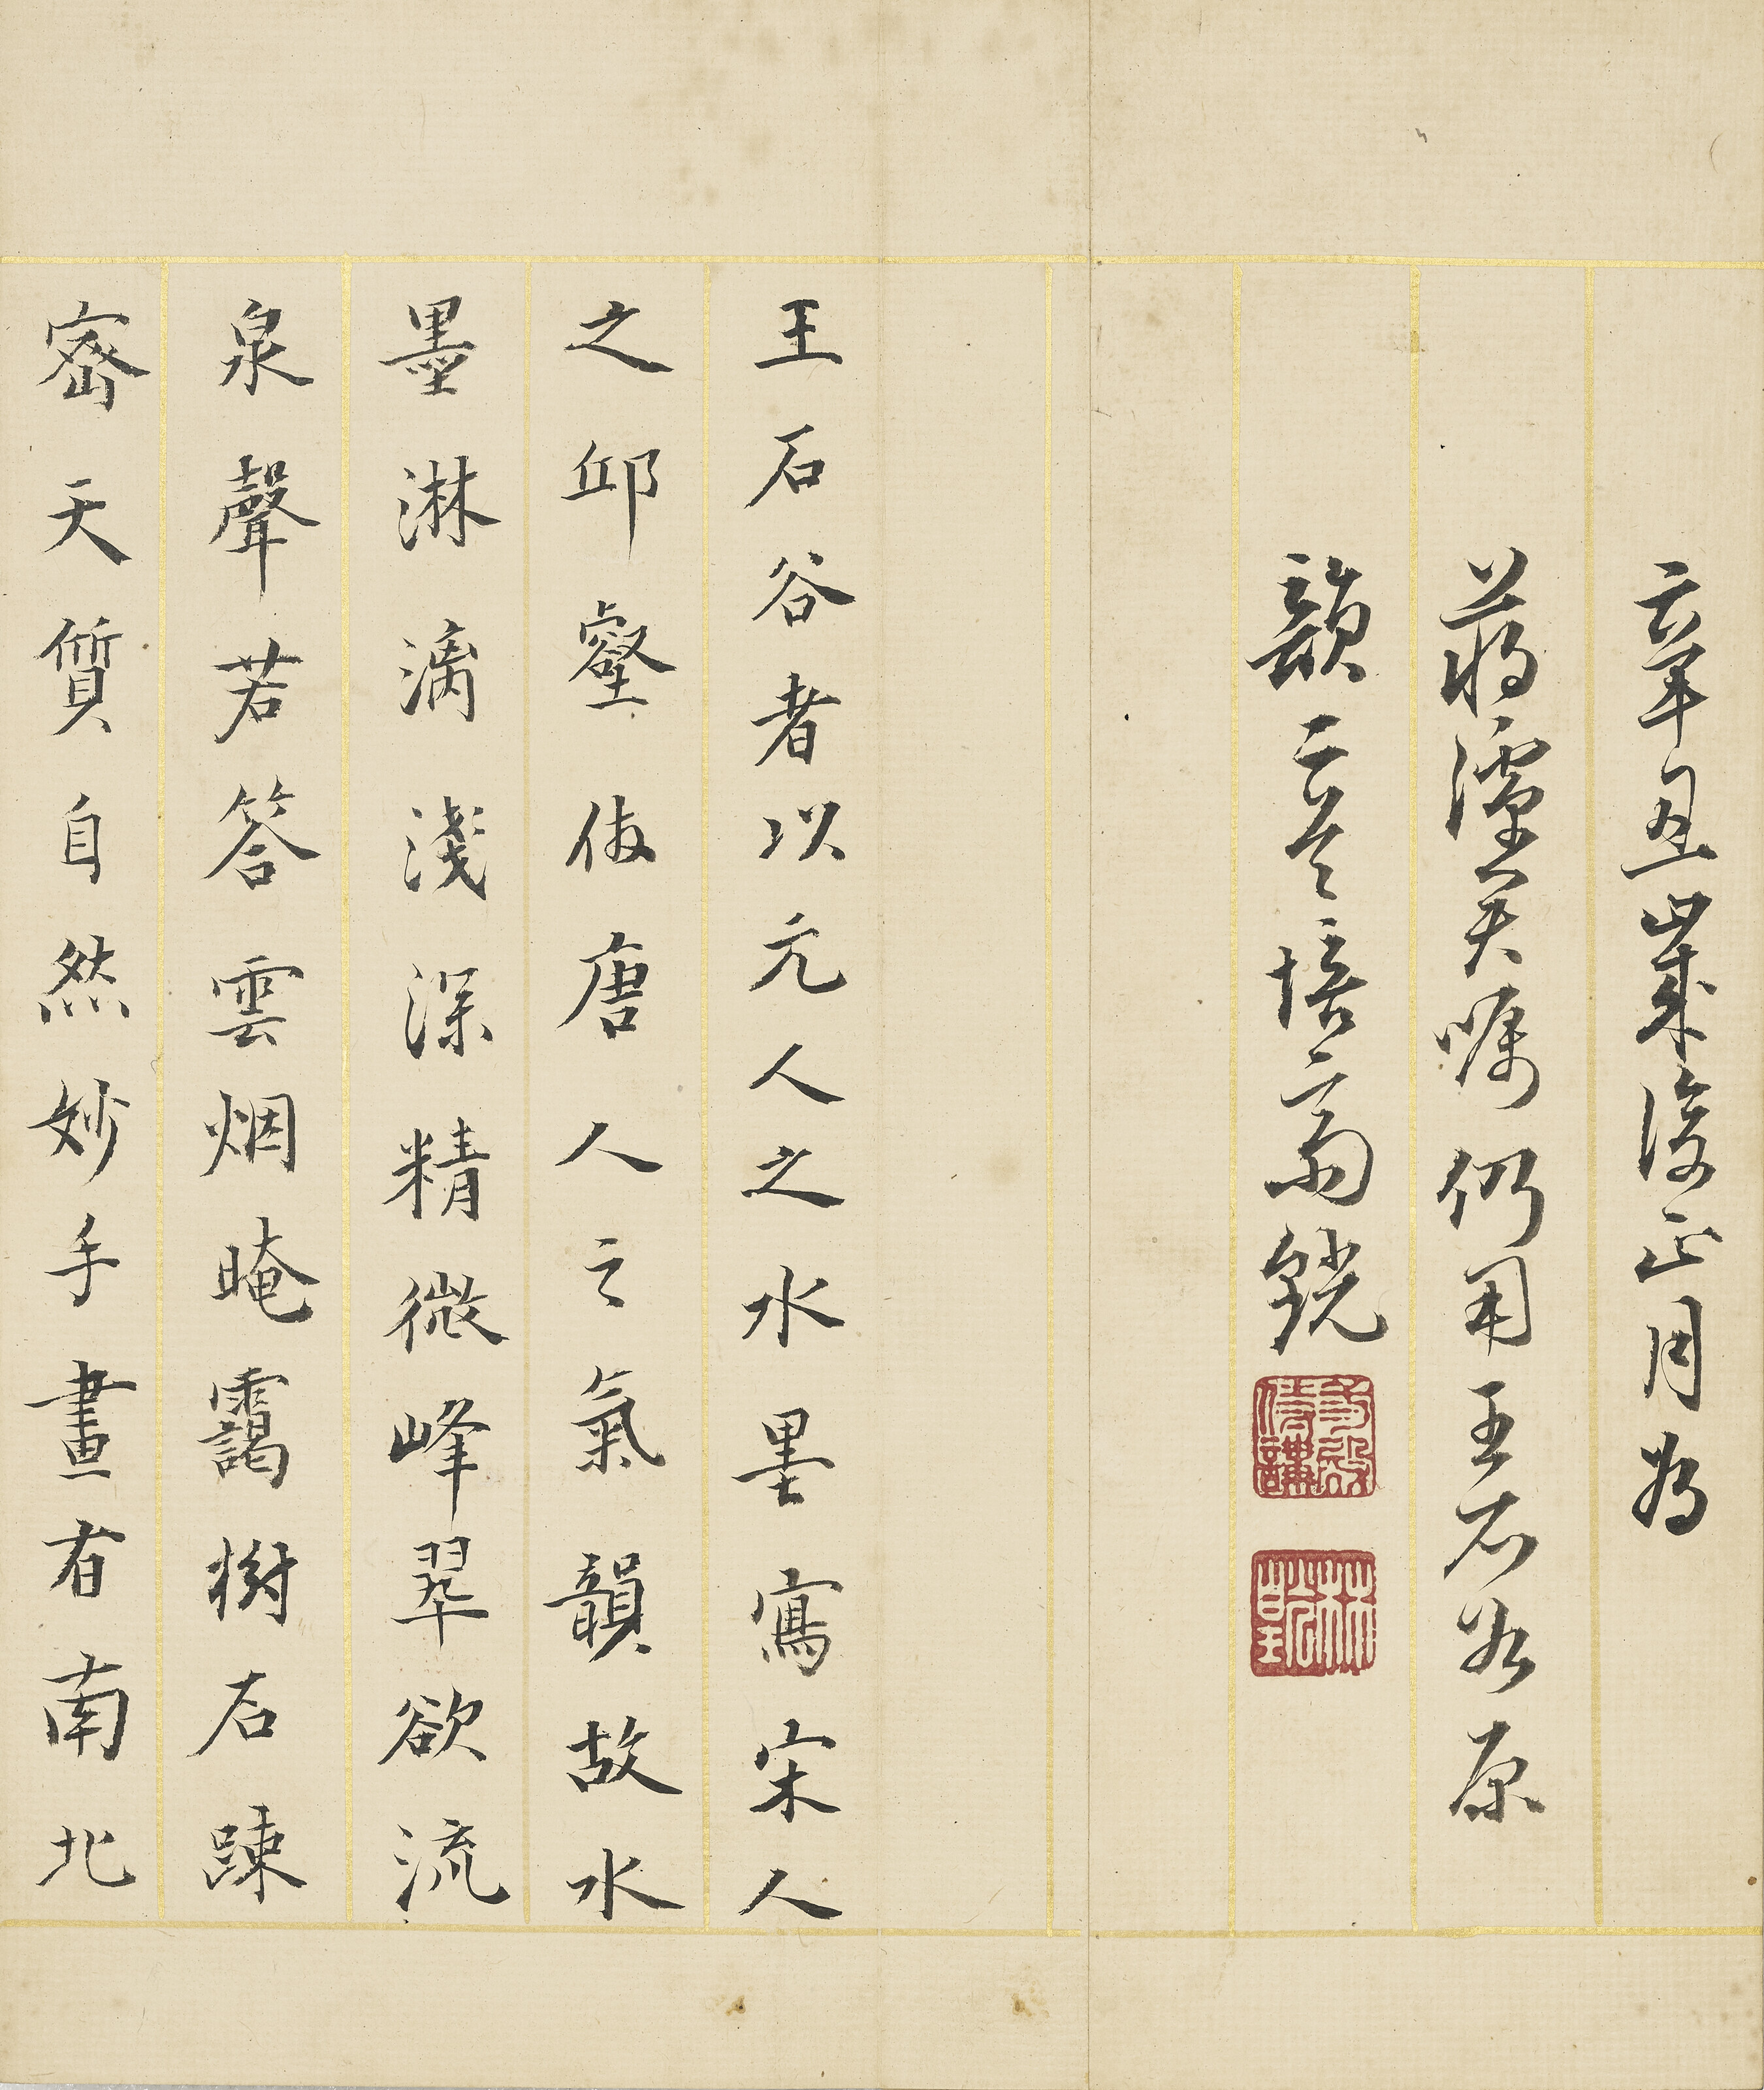 辛丑歲後正月為
蔣嘱仍用王石谷原
韻培
王石谷者以元人之水墨寫宋人
之邱壑倣唐人之氣韻故水
墨淋漓淺深精微峰翠欲流
泉聲若答雲烟晻靄樹石踈
密天質自然妙手畫有南北